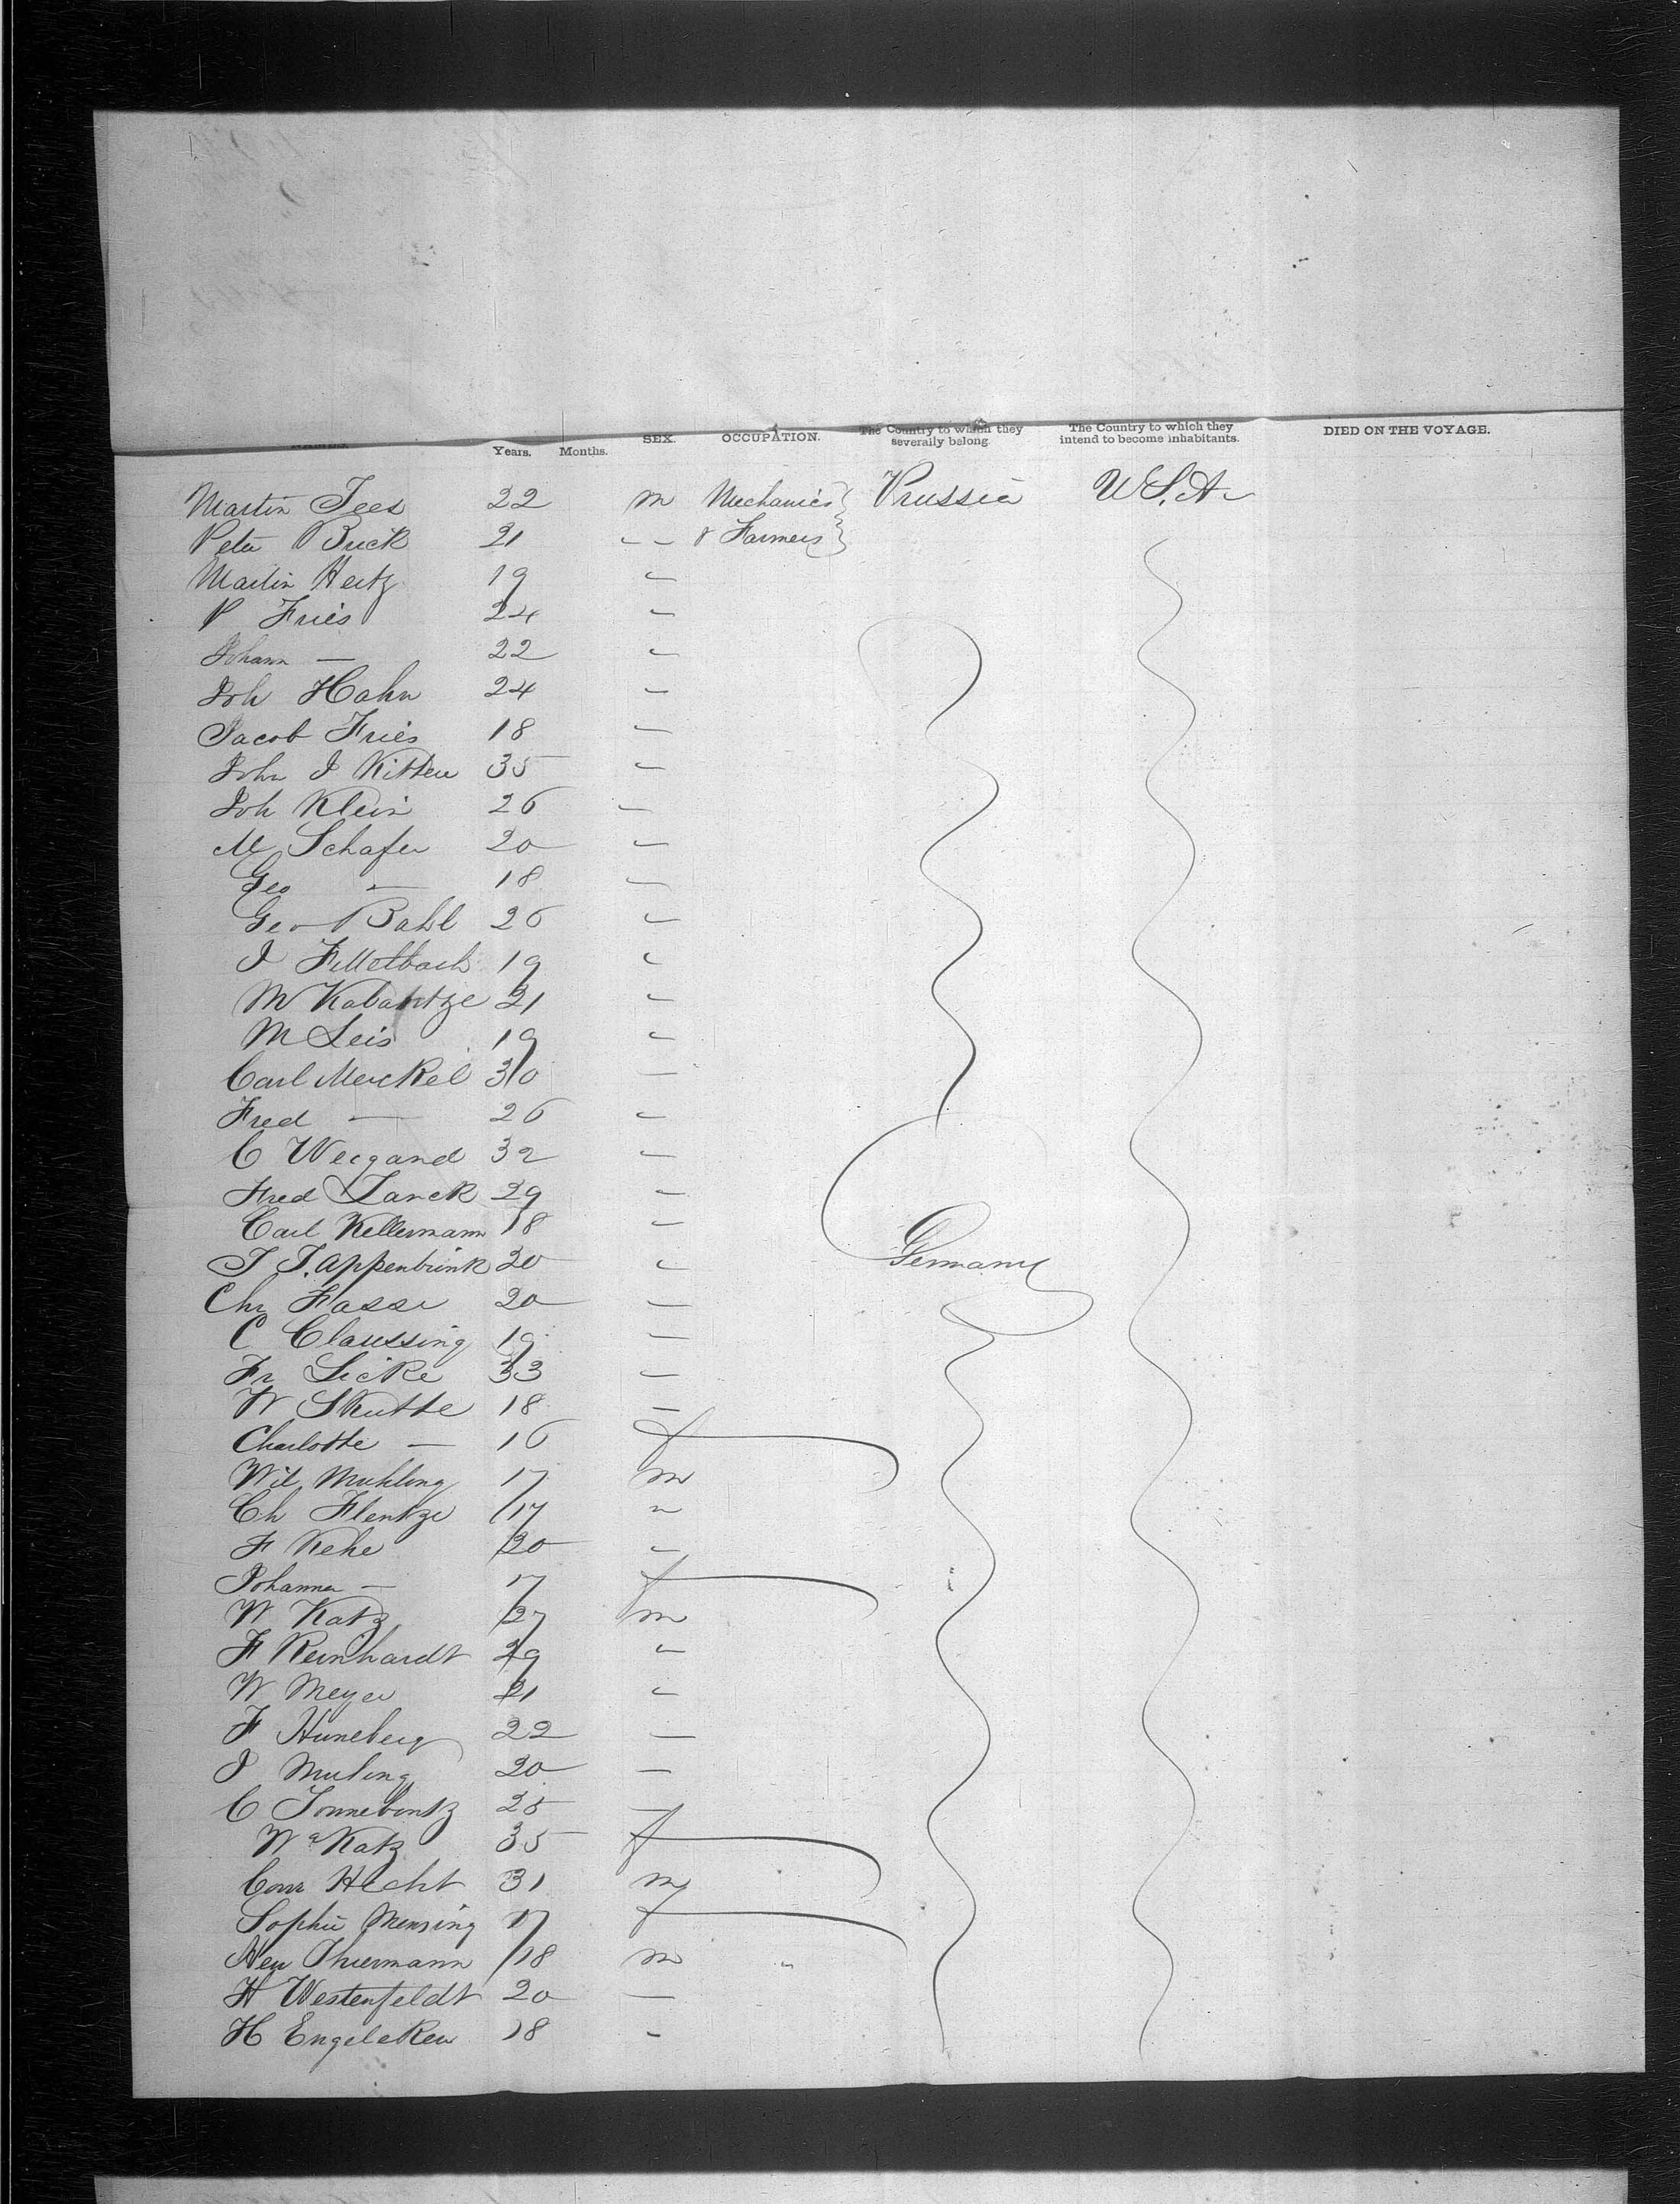 Years. Months. SEX. OCCUPATION. The Country to which they severally belong. The Country to which they intend to become inhabitants. DIED ON THE VOYAGE.
Martin Tees 22 m Mechanics Prussia U.S.A.
Peter Brick 21 — — & Farmers
Martin Hertz 19 —
P Fries 24 —
Johann — 22 —
Joh Hahn 24 —
Jacob Fries 18 —
John J Kitten 35 —
Joh Klein 26 —
M Schafer 20 —
Geo — 18 —
Geo Bahl 26 —
J Fettelbach 19 —
M 21 —
M Leis 19 —
Carl Merckel 30 —
Fred — 26 —
C Weigand 32 —
Fred Janck 29 —
Carl Kellermann 18 —
J J. Appenbrink 30 — Germany
Chr Fasse 20 —
C Claussing 19 —
Fr Licke 33 —
W Skutte 18 —
Charlotte — 16 f
Wil Muhling 17 m
Ch Flentze 17 "
F Kehe 20 —
Johanna — 17 f
W Katz 27 m
F Reinhardt 29 —
W Meyer 21 —
F Huneberg 22 —
J Muling 20 —
C 25 —
Wa Katz 35 f
Conr Hecht 31 m
Sophie Mensing 17 f
Hen Thiermann 18 m
H Westenfeldt 20 —
H Engeleken 18 -